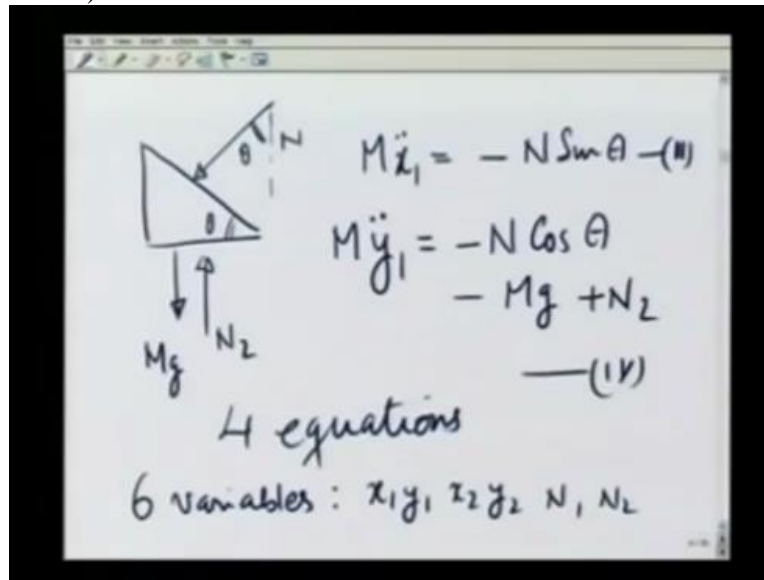 θ N
Mẍ₁ = − N Sin θ —(III)
θ
Mÿ₁ = − N Cos θ
− Mg + N₂
Mg N₂
——(IV)
4 equations
6 variables : x₁ y₁ x₂ y₂ N, N₂